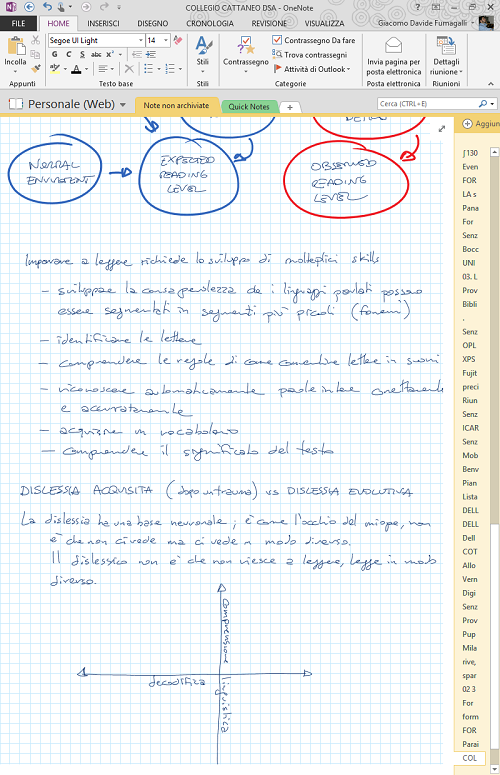 COLLEGIO CATTANEO DSA - OneNote
FILE HOME INSERISCI DISEGNO CRONOLOGIA REVISIONE VISUALIZZA Giacomo Davide Fumagalli
Incolla
Appunti
Segoe UI Light 14
G C S abc
Testo base
Stili
Stili
Contrassegno
Contrassegno Da fare
Trova contrassegni
Attività di Outlook
Categorie
Invia pagina per posta elettronica
Posta elettronica
Dettagli riunione
Riunioni
Personale (Web) Note non archiviate Quick Notes
Cerca (CTRL+E)
NORMAL
EXPECTED
READING
LEVEL
OBSERVED
READING
LEVEL
Imparare a leggere richiede lo sviluppo di molteplici skills
- sviluppare la consapevolezza che i linguaggi parlati possono
essere segmentati in segmenti più piccoli (fonemi)
- identificare le lettere
- comprendere le regole di come convertire lettere in suoni
- riconoscere automaticamente parole intere correttamente
e accuratamente
- acquisire un vocabolario
- comprendere il significato del testo
DISLESSIA ACQUISITA (dopo un trauma) vs DISLESSIA EVOLUTIVA
La dislessia ha una base neuronale; è come l'occhio del miope, non
è che non ci vede ma ci vede in modo diverso.
Il dislessico non è che non riesce a leggere, legge in modo
diverso.
comprensione
linguistica
decodifica
Aggiun
∫130
Even
FOR
LA s
Pana
For
Senz
Bocc
UNI
03. L
Prov
Bibli
.
Senz
OPL
XPS
Fujit
preci
Riun
Senz
ICAR
Senz
Mob
Benv
Pian
Lista
DELL
DELL
Dell
COT
Allo
Vern
Digi
Senz
Prov
Pup
Mila
rive,
spar
02 3
For
form
FOR
Parai
COL